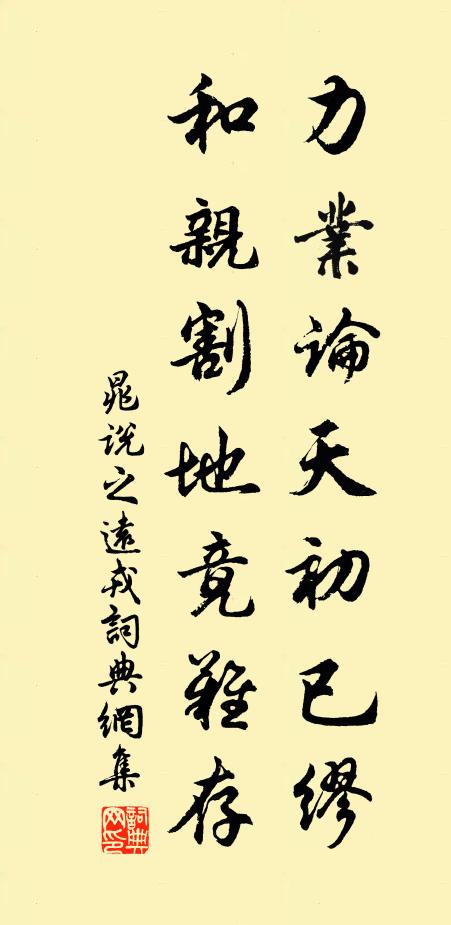 力業論天初已繆
和親割地竟難存
晁說之遠戎詞典網集
詞典
网印